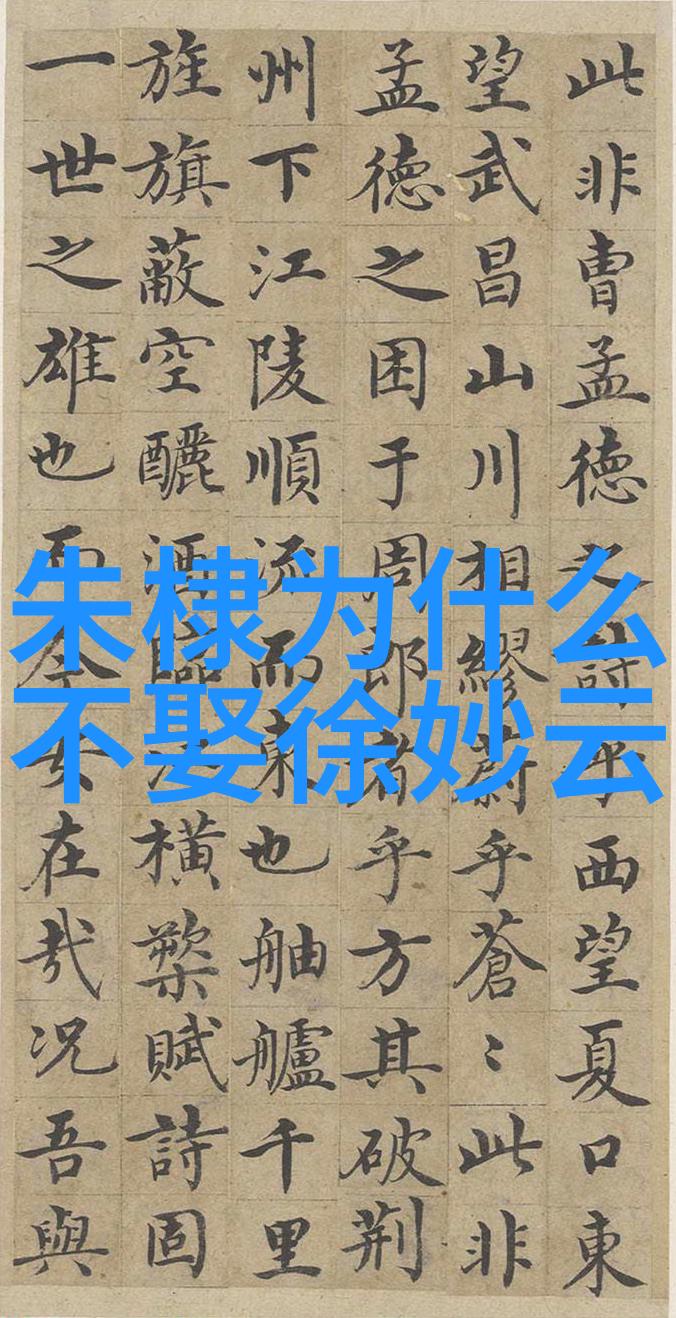 此非曹孟德之詩乎西望夏口東
望武昌山川相繆蔚乎蒼〻此非
孟德之困于周郎者乎方其破荊
州下江陵順流而東也舳艫千里
旌旗蔽空釃酒臨江橫槊賦詩固
一世之雄也而今安在哉况吾與
朱棣为什么
不娶徐妙云